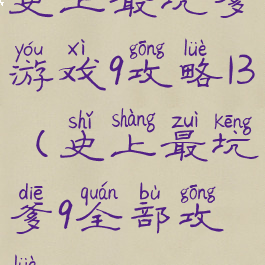 史上最坑爹
yóu xì gōng lüè
游戏9攻略13
shǐ shàng zuì kēng
(史上最坑
diē quán bù gōng
爹9全部攻
lüè